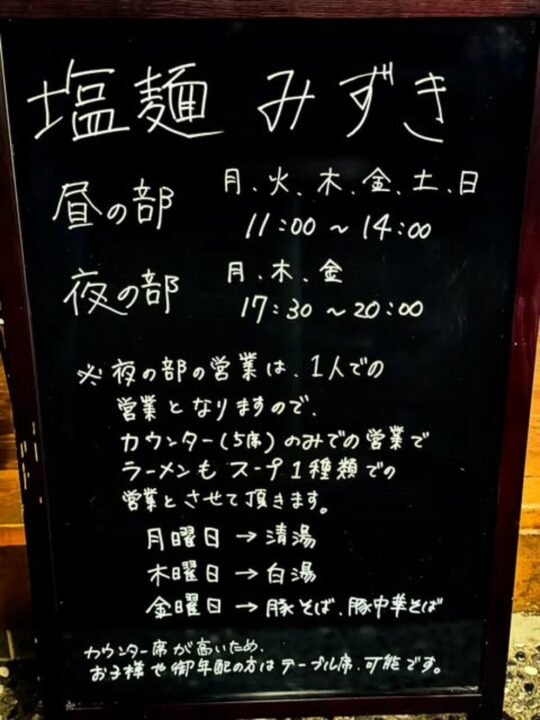 塩麺 みずき
昼の部 月、火、木、金、土、日
11:00～14:00
夜の部 月、木、金
17:30～20:00
※夜の部の営業は、1人での
営業となりますので、
カウンター(5席)のみでの営業で
ラーメンもスープ1種類での
営業とさせて頂きます。
月曜日→清湯
木曜日→白湯
金曜日→豚そば、豚中華そば
カウンター席が高いため、
お子様や御年配の方はテーブル席、可能です。